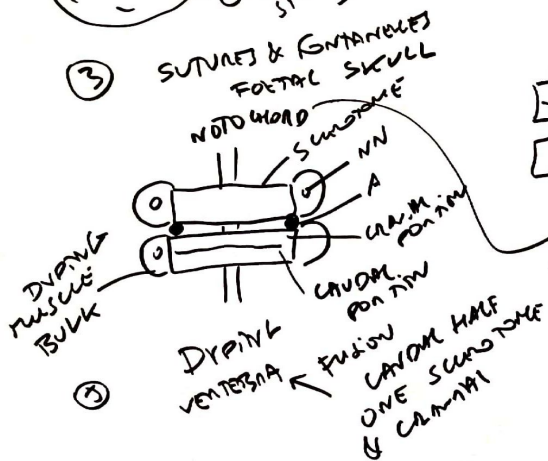 ③ SUTURES & FONTANELLES
FOETAL SKULL
NOTOCHORD
SCLEROTOME
NN
A
CRANIAL
PORTION
CAUDAL
PORTION
DVPING
MUSCLE
BULK
DVPING
VERTEBRA
FUSION
CAUDAL HALF
ONE SCLEROTOME
& CRANIAL